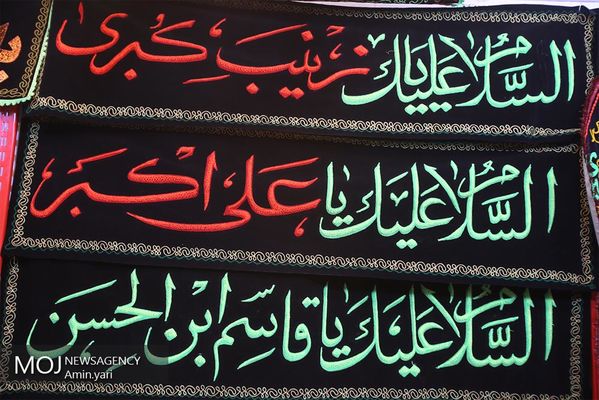 السلام علیک یا زینب کبری
السلام علیک یا علی اکبر
السلام علیک یا قاسم ابن الحسن
MOJ NEWSAGENCY
Amin.yari